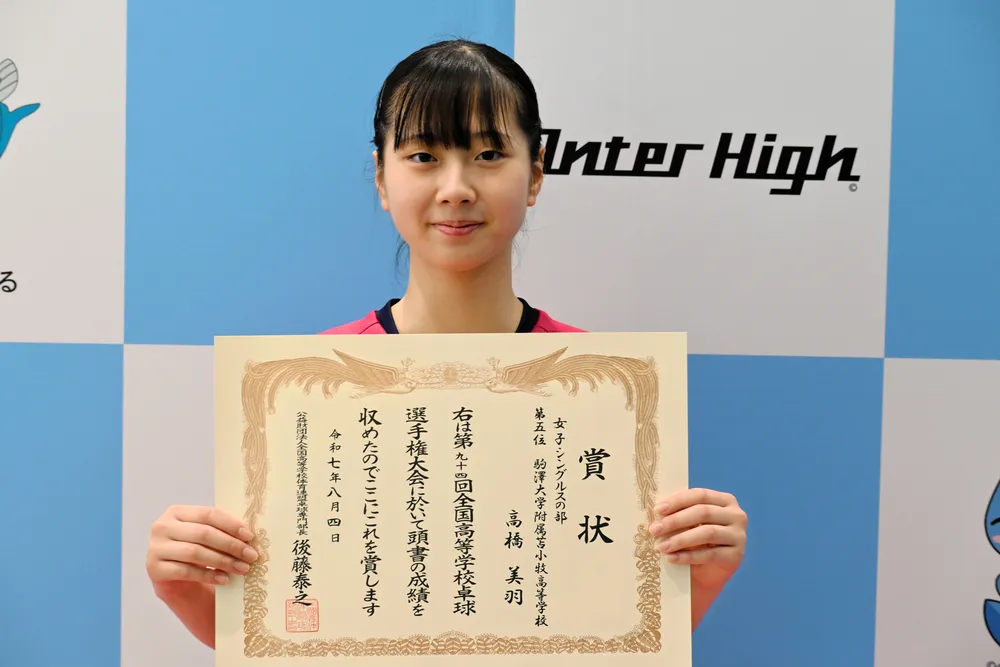 Inter High
©
る
賞状
女子シングルスの部
第五位 駒澤大学附属苫小牧高等学校
高橋 美羽
右は第九十四回全国高等学校卓球
選手権大会に於いて頭書の成績を
収めたのでここにこれを賞します
令和七年八月四日
公益財団法人全国高等学校体育連盟卓球専門部長 後藤泰之